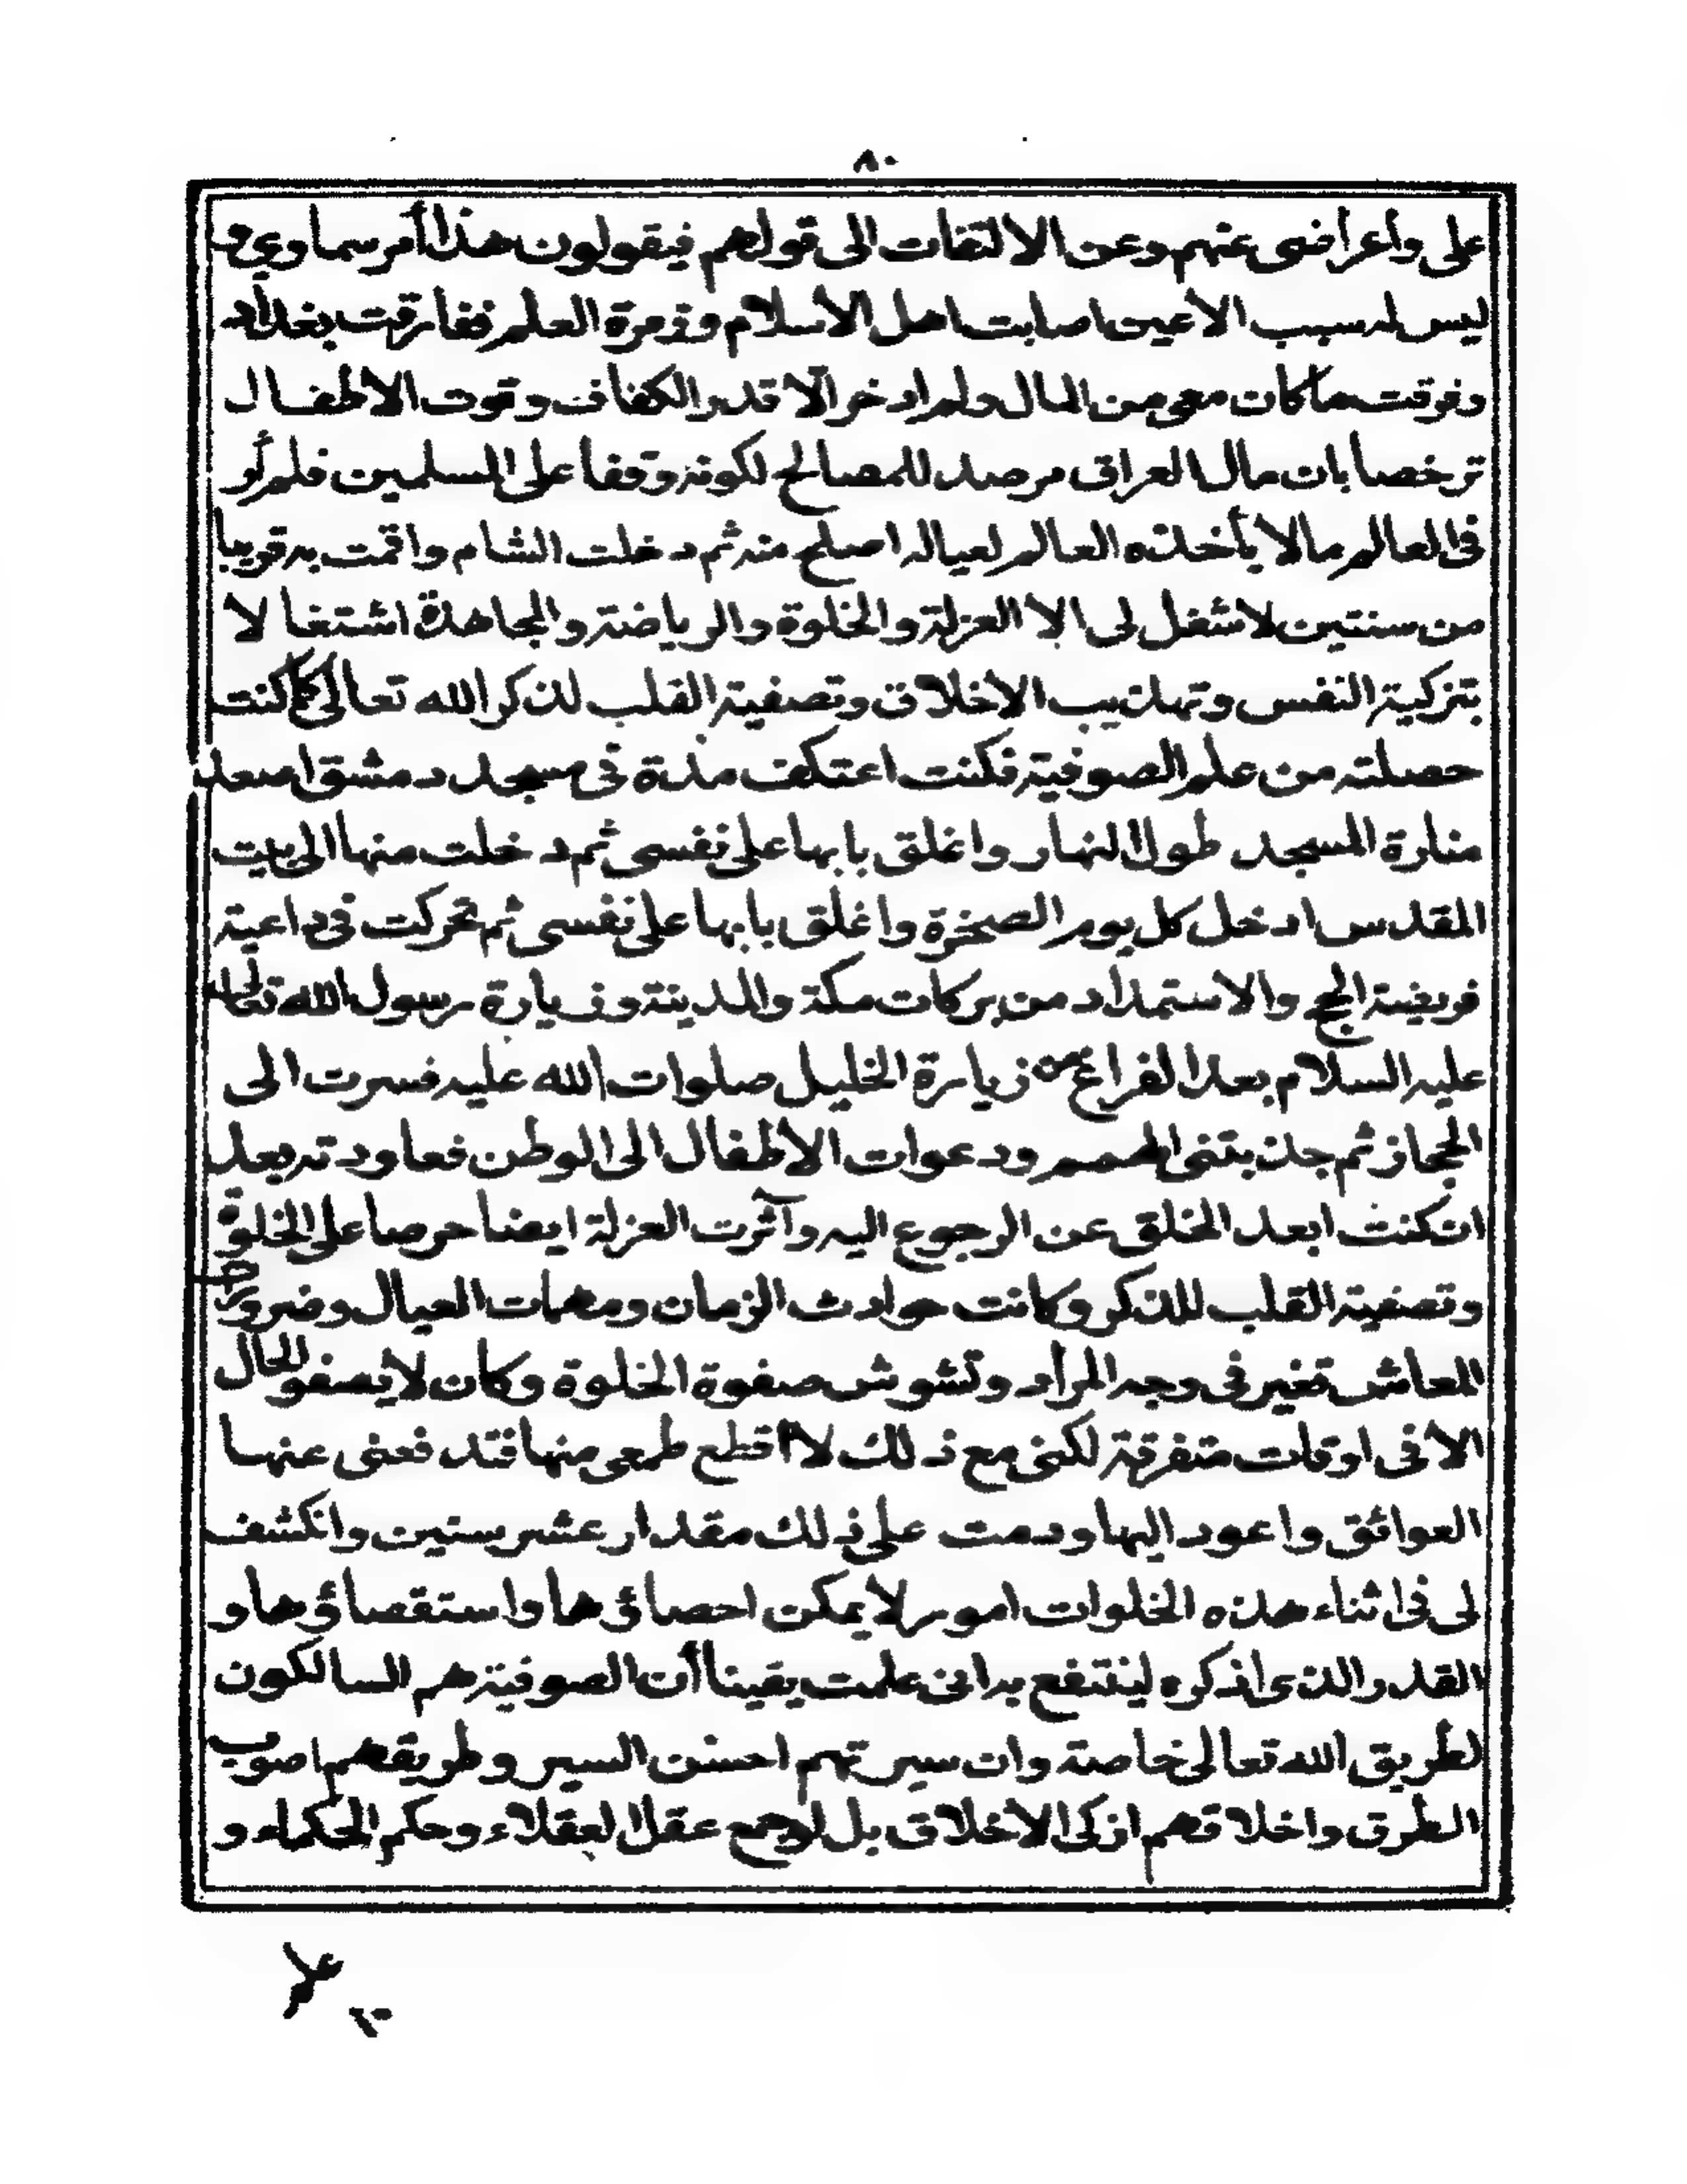 ٨٠
على وأعراضى عنهم وعن الالتفات الى قولهم فيقولون هذا أمر سماوي و
ليس له سبب الا عين اصابت اهل الاسلام وزمرة العلم ففارقت بغداد
وفرقت ما كان معى من المال ولم ادخر الا قدر الكفاف وقوت الاطفال
ترخصا بان مال العراق مرصد للمصالح لكونه وقفا على المسلمين فلم أر
فى العالم مالا يأخذه العالم لعياله اصلح منه ثم دخلت الشام واقمت به قريبا
من سنتين لا شغل لى الا العزلة والخلوة والرياضة والمجاهدة اشتغا لا
بتزكية النفس وتهذيب الاخلاق وتصفية القلب لذكر الله تعالى كما كنت
حصلته من علم الصوفية فكنت اعتكف مدة فى مسجد دمشق اصعد
منارة المسجد طول النهار واغلق بابها على نفسى ثم دخلت منها الى بيت
المقدس ادخل كل يوم الصخرة واغلق بابها على نفسى ثم تحركت فى داعية
فريضة الحج والاستمداد من بركات مكة والمدينة وزيارة رسول الله تعالى
عليه السلام بعد الفراغ من زيارة الخليل صلوات الله عليه فسرت الى
الحجاز ثم جذبتنى الهمم ودعوات الاطفال الى الوطن فعاودته بعد
ان كنت ابعد الخلق عن الرجوع اليه وآثرت العزلة ايضا حرصا على الخلوة
وتصفية القلب للذكر وكانت حوادث الزمان ومهمات العيال وضرورات
المعاش تغير فى وجه المراد وتشوش صفوة الخلوة وكان لا يصفو الحال
الا فى اوقات متفرقة لكنى مع ذلك لا اقطع طمعى منها فتدفعنى عنها
العوائق واعود اليها ودمت على ذلك مقدار عشر سنين وانكشف
لى فى اثناء هذه الخلوات امور لا يمكن احصائها واستقصائها و
القدر الذى اذكره لينتفع به انى علمت يقينا أن الصوفية هم السالكون
لطريق الله تعالى خاصة وان سيرتهم احسن السير وطريقهم اصوب
الطرق واخلاقهم ازكى الاخلاق بل لو جمع عقل العقلاء وحكم الحكماء و
علم